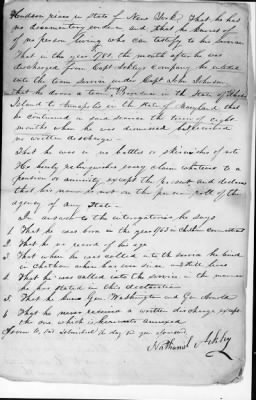 Hudson river in State of New York. That he has
no documentary evidence and that he knows of
no person living who can testify to his service
That in the year 1781 the month after he was
discharged from Capt company he enlisted
into the team service under Capt John Johnson
that he drove a team from in the State of Rhode
Island to Annapolis in the State of Maryland that
he continued in said service the term of eight
months when he was dismissed but received
no written discharge -
That he was in no battles or skirmishes of note
He hereby relinquishes every claim whatever to a
pension or annuity except the present and declares
that his name is not on the pension roll of the
agency of any State -
In answer to the interrogatories he says
1 That he was born in the year 1763 in Chatham Connecticut
2 That he has no record of his age
3 That when he was called into the service he lived
in Chatham where has ever since and still lives
4 That he was called into the service in the manner
he has stated in this declaration
5 That he knew Gen. Washington and Gen Arnold
6 That he never received a written discharge except
the one which is herewith annexed
Sworn to and subscribed the day and year aforesaid
Nathaniel Ackley